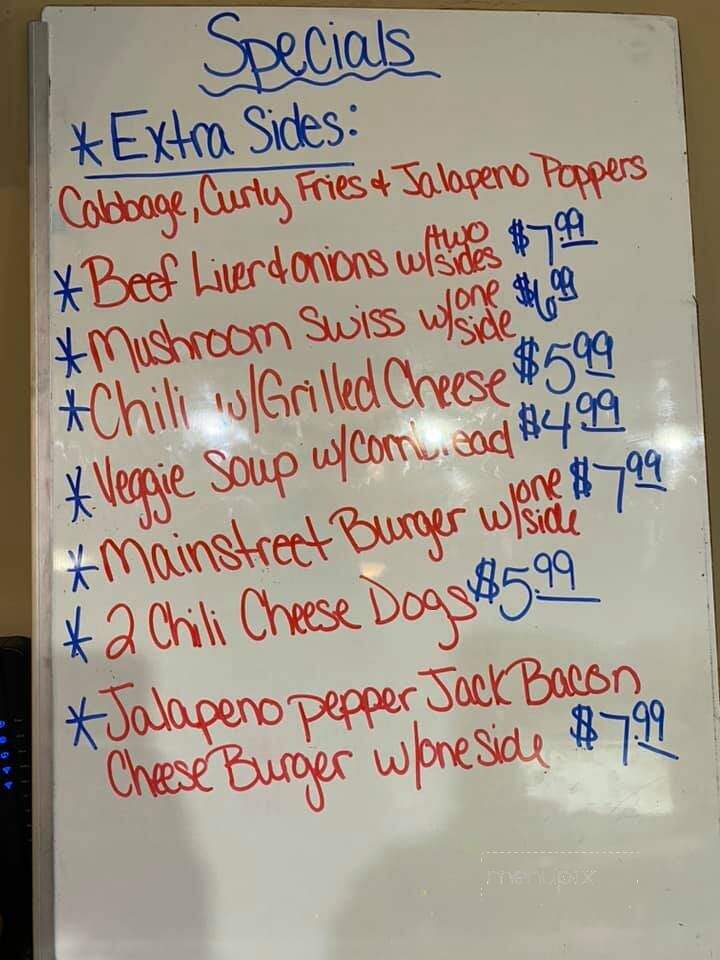 Specials
* Extra Sides:
Cabbage, Curly Fries & Jalapeno Poppers
* Beef Liver & onions w/two sides $7.99
* Mushroom Swiss w/one side $6.99
* Chili w/Grilled Cheese $5.99
* Veggie Soup w/Cornbread $4.99
* Mainstreet Burger w/one side $7.99
* 2 Chili Cheese Dogs $5.99
* Jalapeno pepper Jack Bacon
Cheese Burger w/one side $7.99
menupix